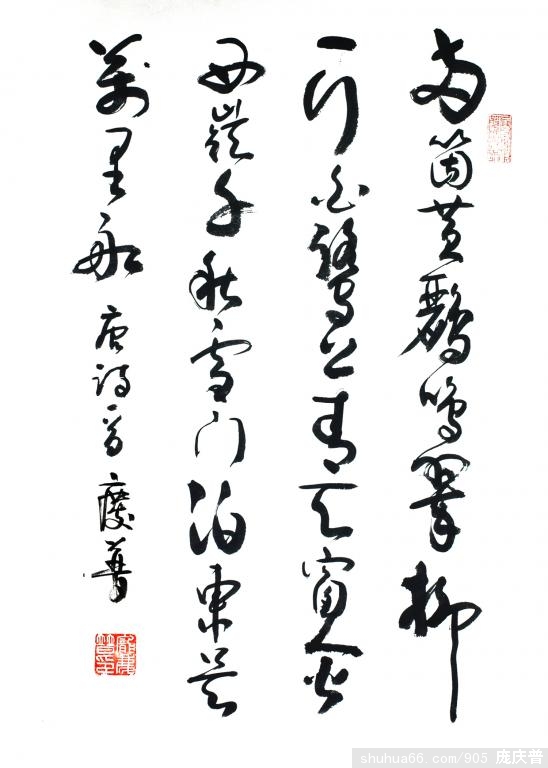 两箇黄鸝鸣翠柳
一行白鷺上青天窗含
西嶺千秋雪门泊東吴
萬里船 唐诗一首 慶普
shuhua66.com/905 庞庆普